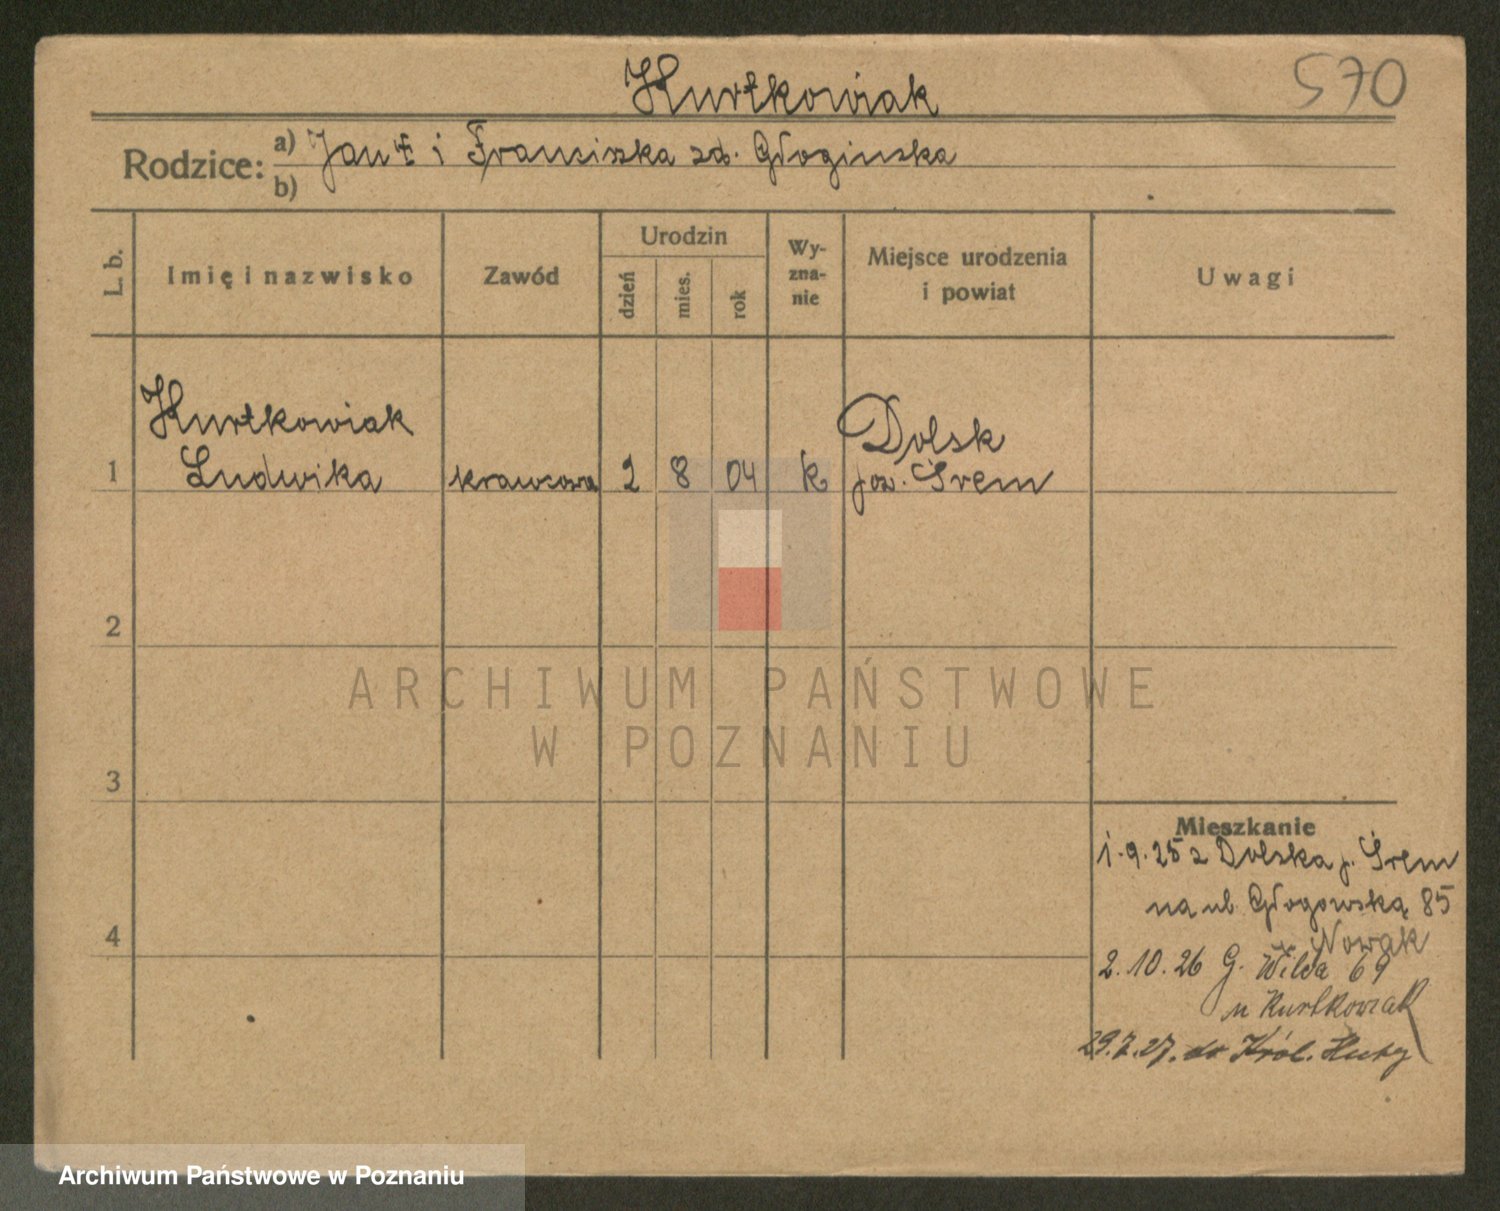 570
Kurtkowiak
Rodzice: a) Jan i Franciszka zd. Głoginska
b)
L. b.
Imię i nazwisko
Zawód
Urodzin
dzień
mies.
rok
Wy-
zna-
nie
Miejsce urodzenia
i powiat
Uwagi
Kurtkowiak
Ludwika
1
krawcowa
2
8
04
k
Dolsk
pow. Śrem
2
3
4
ARCHIWUM PAŃSTWOWE
W POZNANIU
Mieszkanie
1.9.25 z Dolska p. Śrem
na ul Głogowską 85
Nowak
2.10.26 G. Wilda 69
u Kurtkowiak
29.7.27. do Król. Huty
Archiwum Państwowe w Poznaniu